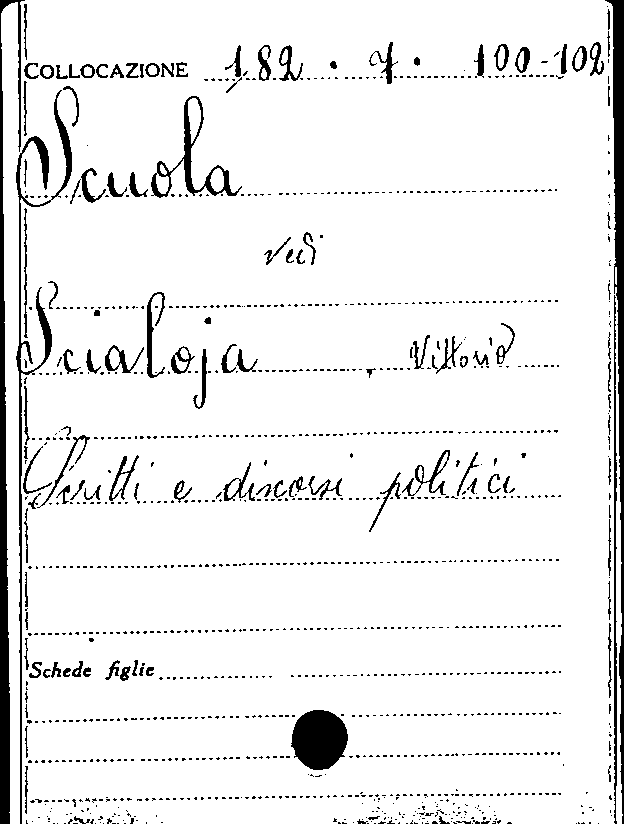 COLLOCAZIONE 182 . 7 . 100-102
Scuola
vedi
Scialoja, Vittorio
Scritti e discorsi politici
Schede figlie